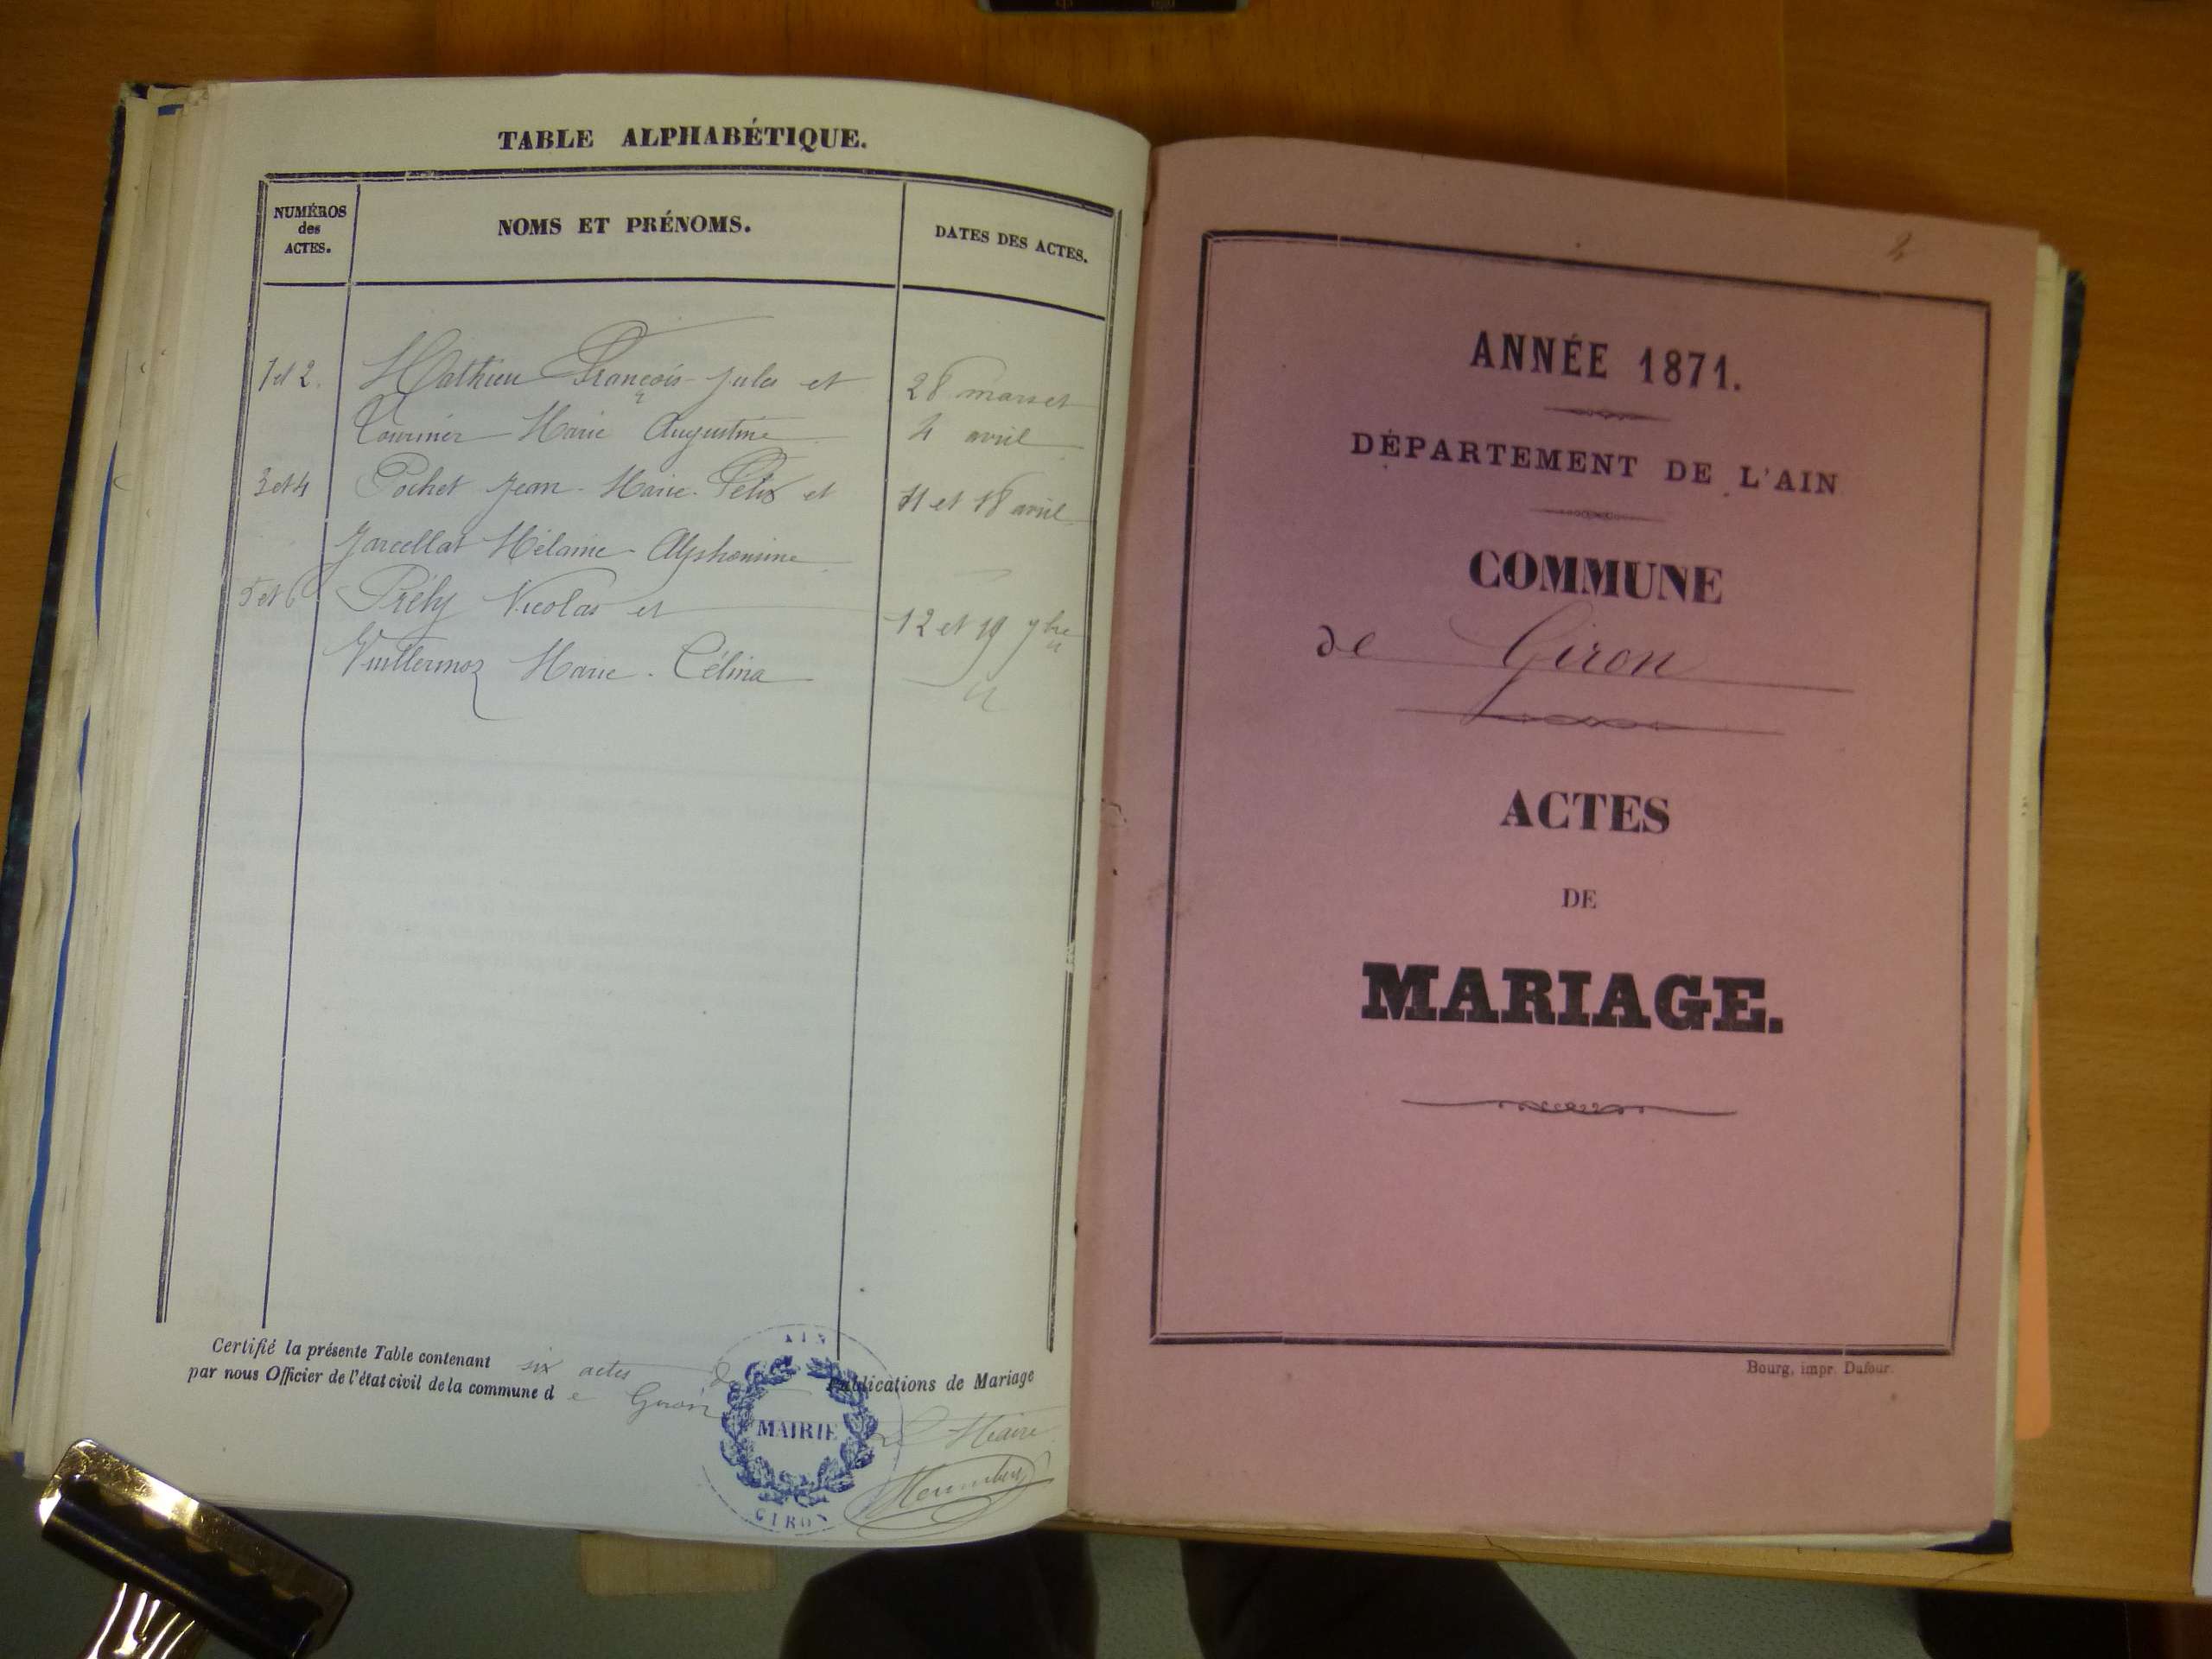 TABLE ALPHABÉTIQUE.
NUMÉROS
des
ACTES.
NOMS ET PRÉNOMS.
DATES DES ACTES.
1 et 2. Mathieu François-Jules et 28 mars et
Tournier Marie Augustine 4 avril
3 et 4 Pochet Jean-Marie-Félix et 11 et 18 avril
Jarcellat Mélanie-Alphonsine
5 et 6 Prély Nicolas et 12 et 19 9bre
Vuillermoz Marie-Célina
Certifié la présente Table contenant six actes de Publications de Mariage
par nous Officier de l'état civil de la commune de Giron
Le Maire
AIN
MAIRIE
GIRON
ANNÉE 1871.
DÉPARTEMENT DE L'AIN
COMMUNE
de Giron
ACTES
DE
MARIAGE.
Bourg, impr. Dufour.